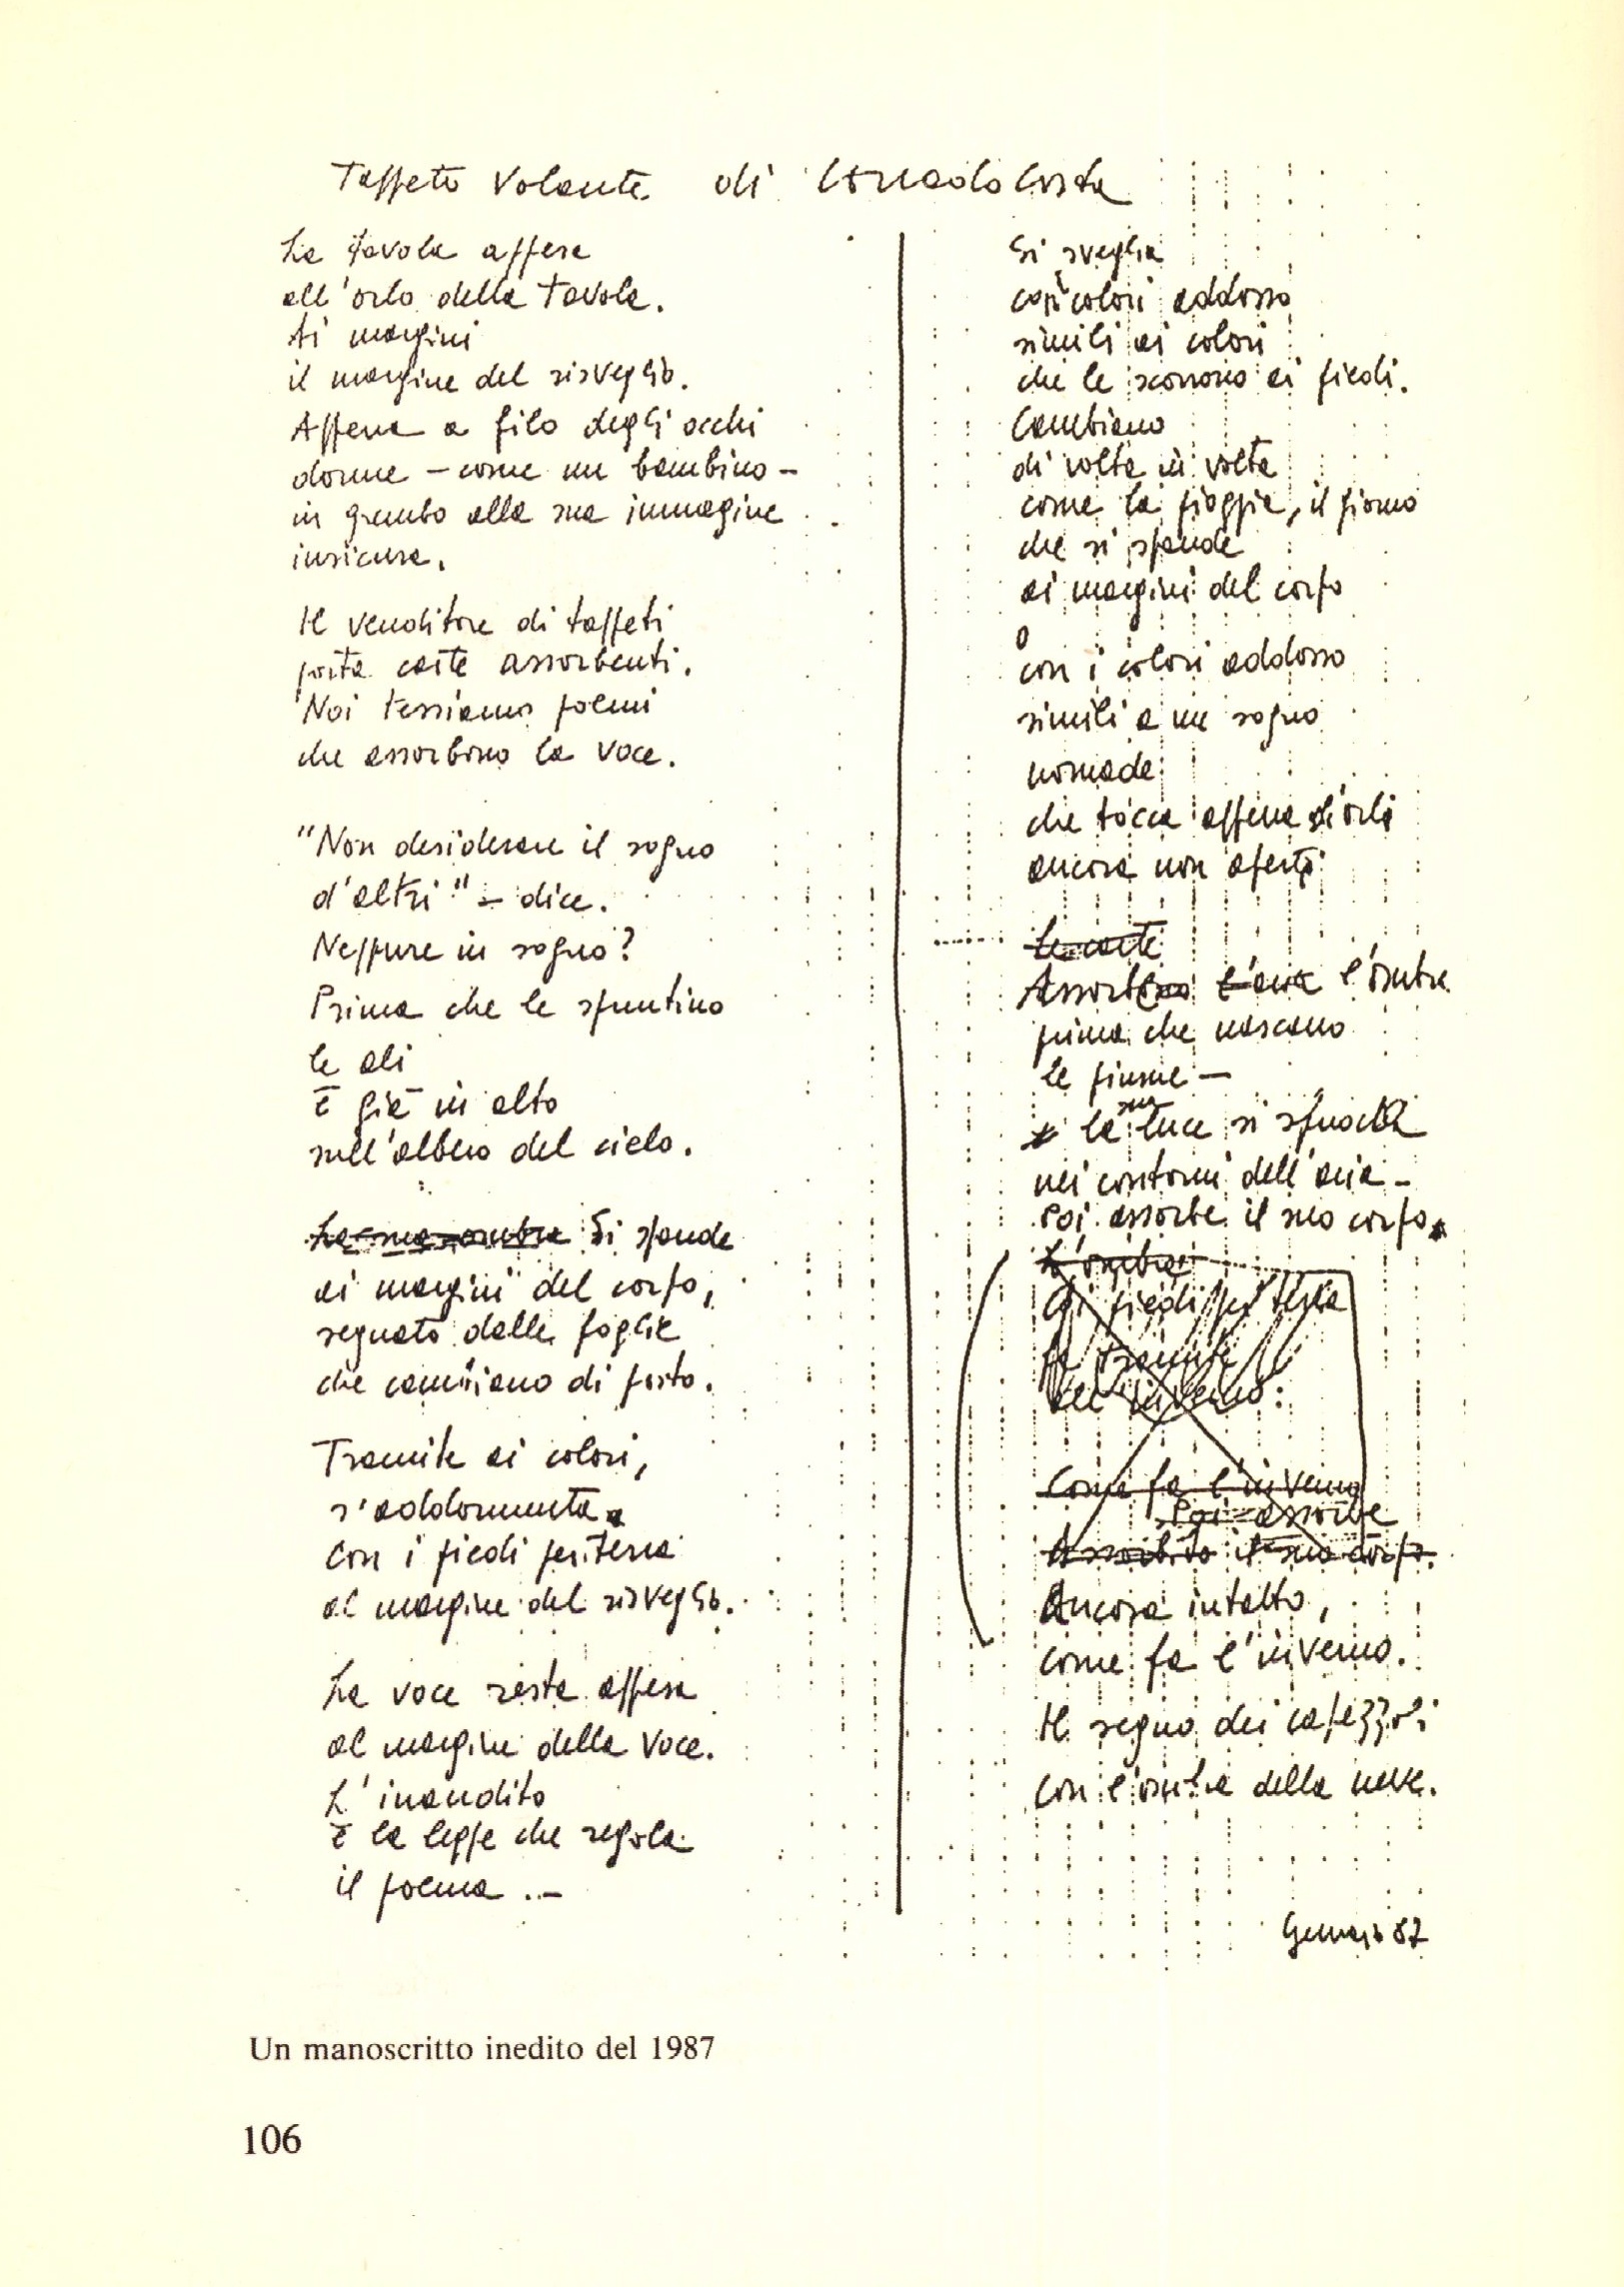 Tappeto Volante di Corrado Costa
La favola appesa
all'orlo della tavola.
Ai margini
il margine del risveglio.
Appena a filo degli occhi
dorme – come un bambino –
in grembo alla sua immagine
insicura.
Il venditore di tappeti
porta carte assorbenti.
Noi tessiamo poemi
che assorbono la voce.
"Non desiderare il sogno
d'altri" – dice.
Neppure in sogno?
Prima che le spuntino
le ali
È già in alto
sull'albero del cielo.
La sua ombra Si spande
ai margini del corpo,
segnato dalle foglie
che cambiano di posto.
Tramite ai colori,
s'addormenta
con i piedi per terra
al margine del risveglio.
La voce resta appesa
al margine della voce.
L'inaudito
È la legge che regola
il poema . –
Si sveglia
con colori addosso
simili ai colori
che le scorrono ai piedi.
Cambiano
di volta in volta
come la pioggia, il giorno
che si spande
ai margini del corpo
o
con i colori addosso
simili a un sogno
nomade
che tocca appena gli orli
ancora non aperti
Le carte
l'aria l'ombra
prima che nascano
le piume –
la sua luce si
nei contorni dell'aria –
Poi assorbe il suo corpo
L'ombra
Coi piedi per terra
fa tramite
all'inverno:
Come fa l'inverno
Poi assorbe
Assorbito il suo corpo.
Ancora in alto,
come fa l'inverno.
Il segno dei capezzoli
con l'ombra della neve.
Gennaio 87
Un manoscritto inedito del 1987
106